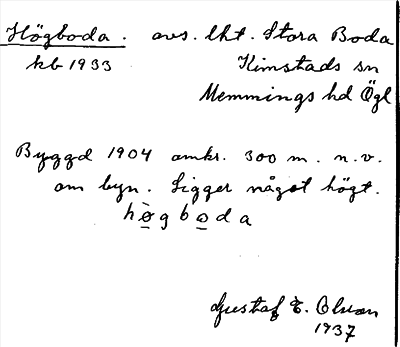 Högboda. avs. lht. Stora Boda
kb 1933 Kimstads sn
Memmings hd Ögl
Byggd 1904 omkr. 300 m. n.v.
om byn. Ligger något högt.
hø̀gboda
Gustaf E. Olson
1937